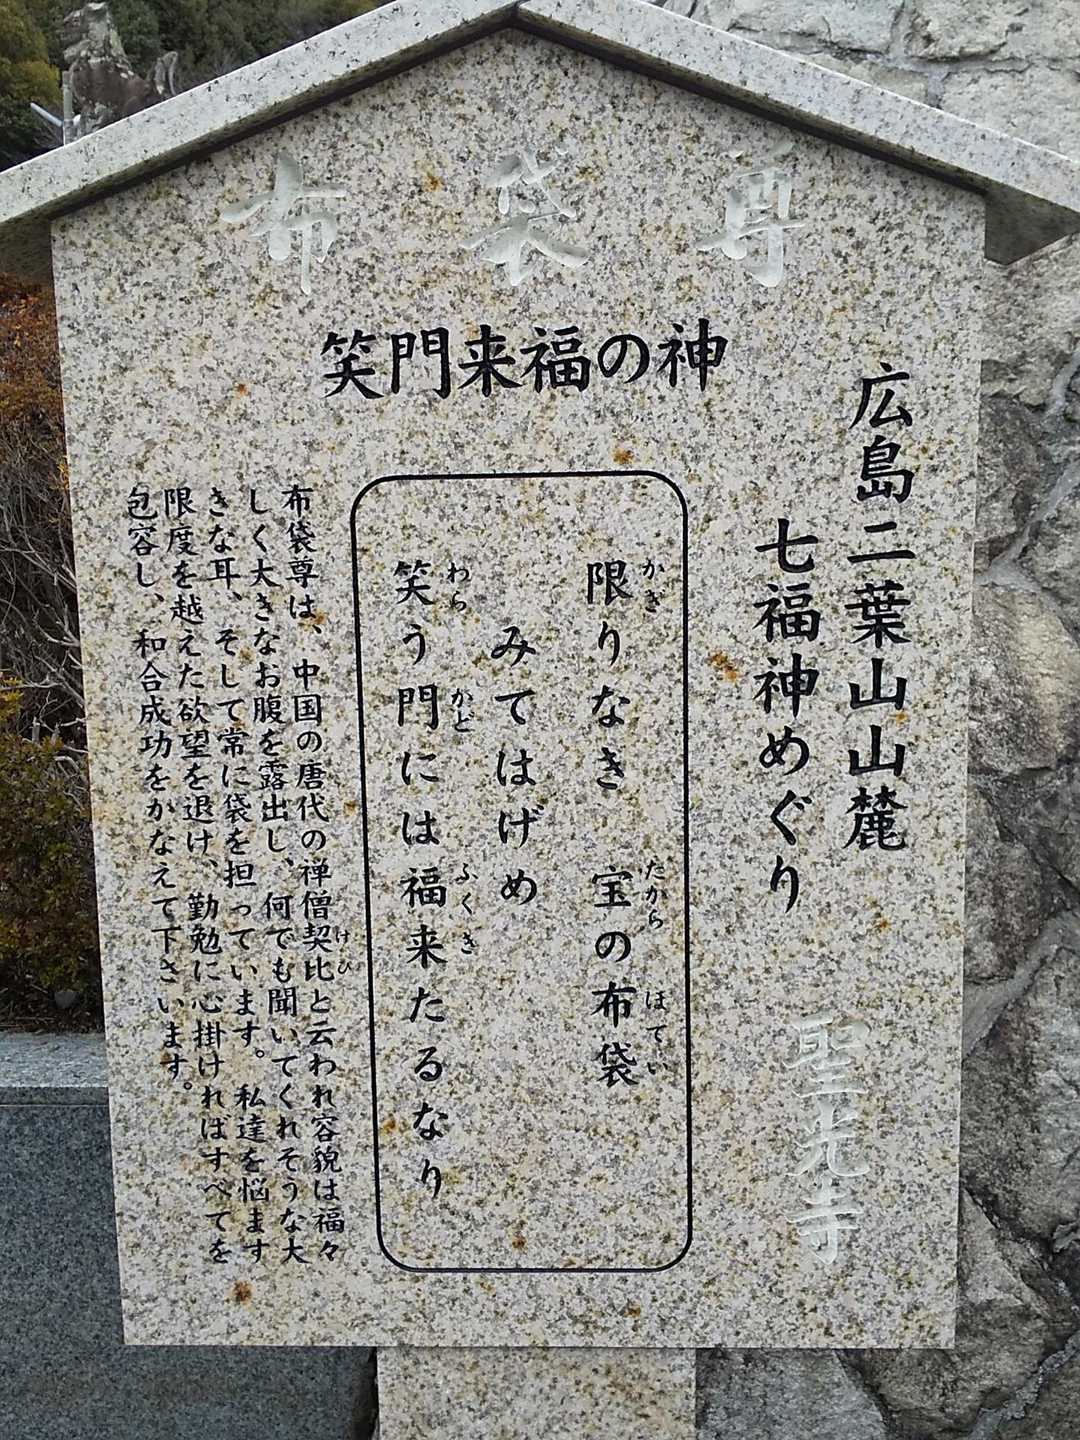 布袋尊
笑門来福の神
広島二葉山山麓
七福神めぐり
聖光寺
限りなき 宝の布袋
かぎ たから ほてい
みてはげめ
笑う門には福来たるなり
わら かど ふくき
布袋尊は、中国の唐代の禅僧契比と云われ容貌は福々
けひ
しく大きなお腹を露出し、何でも聞いてくれそうな大
きな耳、そして常に袋を担っています。私達を悩ます
限度を越えた欲望を退け、勤勉に心掛ければすべてを
包容し、和合成功をかなえて下さいます。